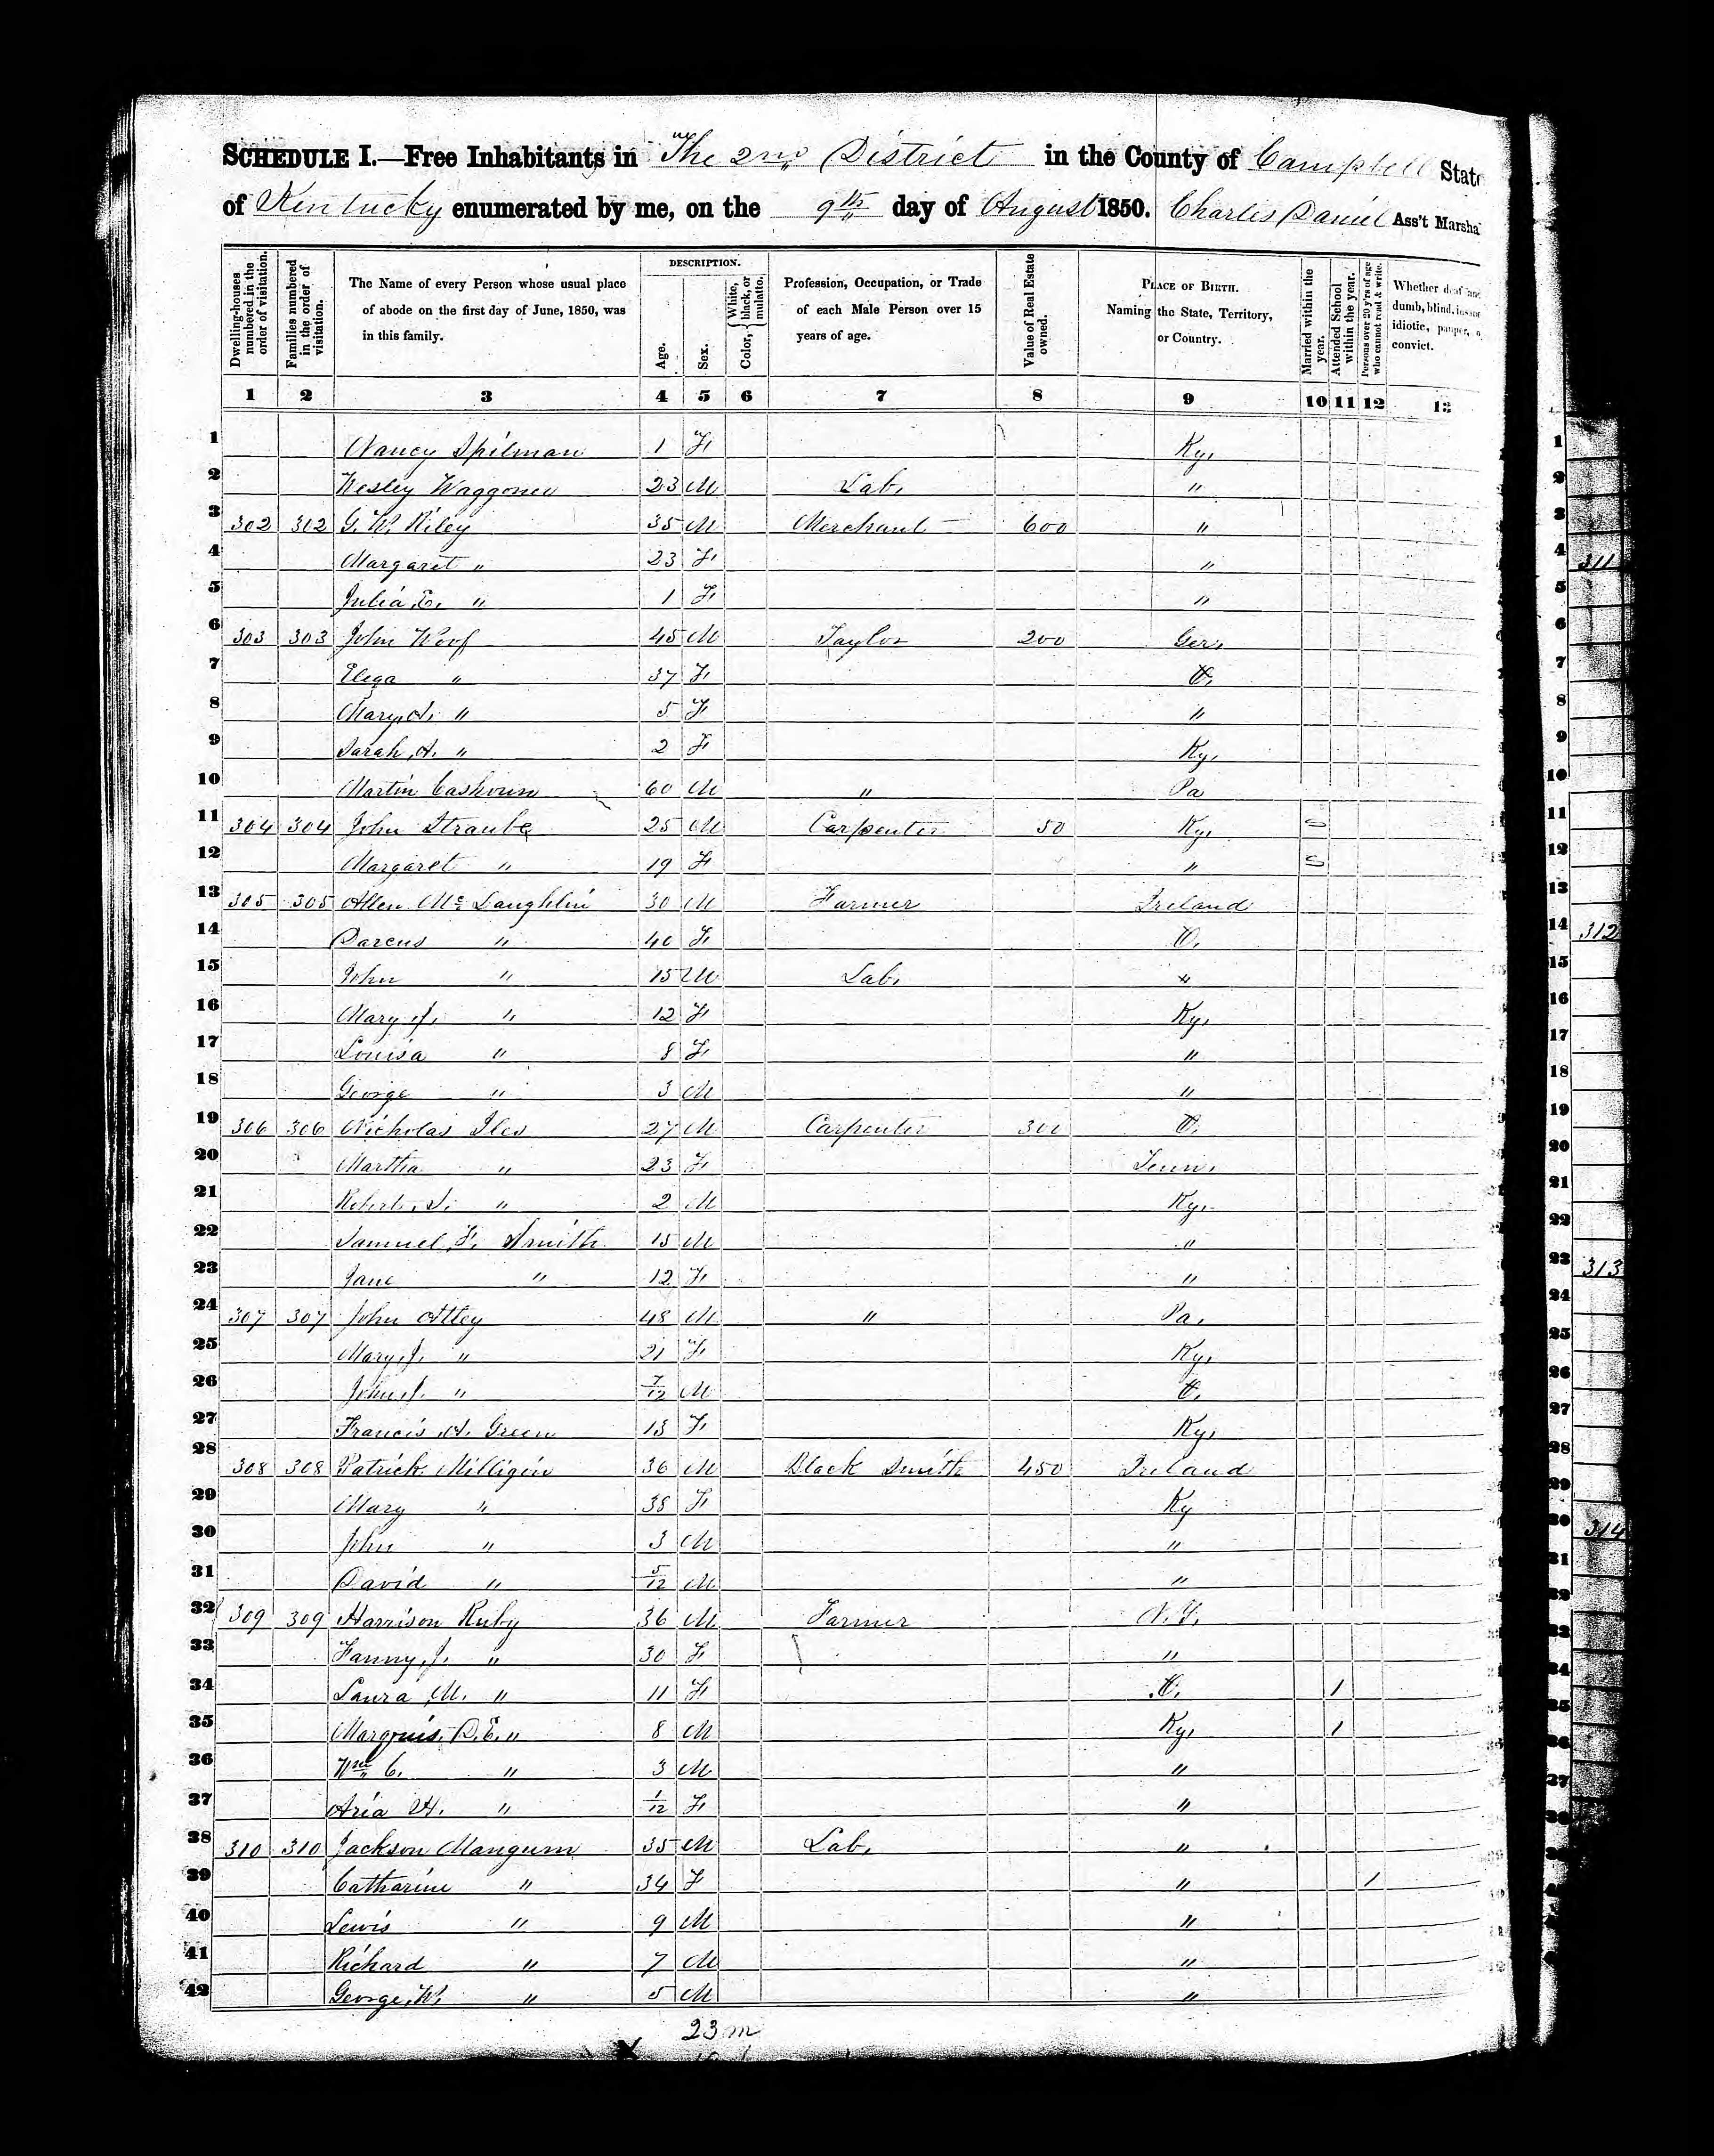 SCHEDULE I.—Free Inhabitants in The 2nd District in the County of Campbell State
of Kentucky enumerated by me, on the 9th day of August 1850. Charles Daniel Ass't Marsha
Dwelling-houses numbered in the order of visitation.
Families numbered in the order of visitation.
The Name of every Person whose usual place of abode on the first day of June, 1850, was in this family.
DESCRIPTION.
Age.
Sex.
Color, { White, black, or mulatto.
Profession, Occupation, or Trade of each Male Person over 15 years of age.
Value of Real Estate owned.
PLACE OF BIRTH. Naming the State, Territory, or Country.
Married within the year.
Attended School within the year.
Persons over 20 y'rs of age who cannot read & write.
Whether deaf and dumb, blind, insane idiotic, pauper, o convict.
1 2 3 4 5 6 7 8 9 10 11 12 13
1 Nancy Spilman 1 F Ky,
2 Wesley Waggoner 23 M Lab, "
3 302 302 G. W. Riley 35 M Merchant 600 "
4 Margaret " 23 F "
5 Julia, E, " 1 F "
6 303 303 John Woof 45 M Taylor 200 Ger,
7 Eliza " 37 F O,
8 Mary, A, " 5 F "
9 Sarah, A. " 2 F Ky,
10 Martin 60 M " Pa
11 304 304 John Straube 25 M Carpenter 50 Ky,
12 Margaret " 19 F "
13 305 305 Allen Mc Laughlin 30 M Farmer Ireland
14 Darcus " 40 F O,
15 John " 15 M Lab, "
16 Mary J, " 12 F Ky,
17 Louisa " 8 F "
18 George " 3 M "
19 306 306 Nicholas Iles 27 M Carpenter 300 O,
20 Martha " 23 F Tenn,
21 Robert, S. " 2 M Ky,
22 Samuel, F, Smith 15 M "
23 Jane " 12 F "
24 307 307 John Attey 48 M " Pa,
25 Mary, J, " 21 F Ky,
26 John, J, " 7/12 M O,
27 Francis, A. Green 13 F Ky,
28 308 308 Patrick Milligin 36 M Black Smith 450 Ireland
29 Mary " 38 F Ky
30 John " 3 M "
31 David " 5/12 M "
32 309 309 Harrison Ruby 36 M Farmer N. Y,
33 Fanny, J. " 30 F "
34 Laura, M. " 11 F O, 1
35 Marquis, D. E. " 8 M Ky, 1
36 Wm C. " 3 M "
37 Aria H. " 1/12 F "
38 310 310 Jackson Mangum 35 M Lab, "
39 Catharine " 34 F " 1
40 Lewis " 9 M "
41 Richard " 7 M "
42 George, W, " 5 M "
23 m
311
312
313
314